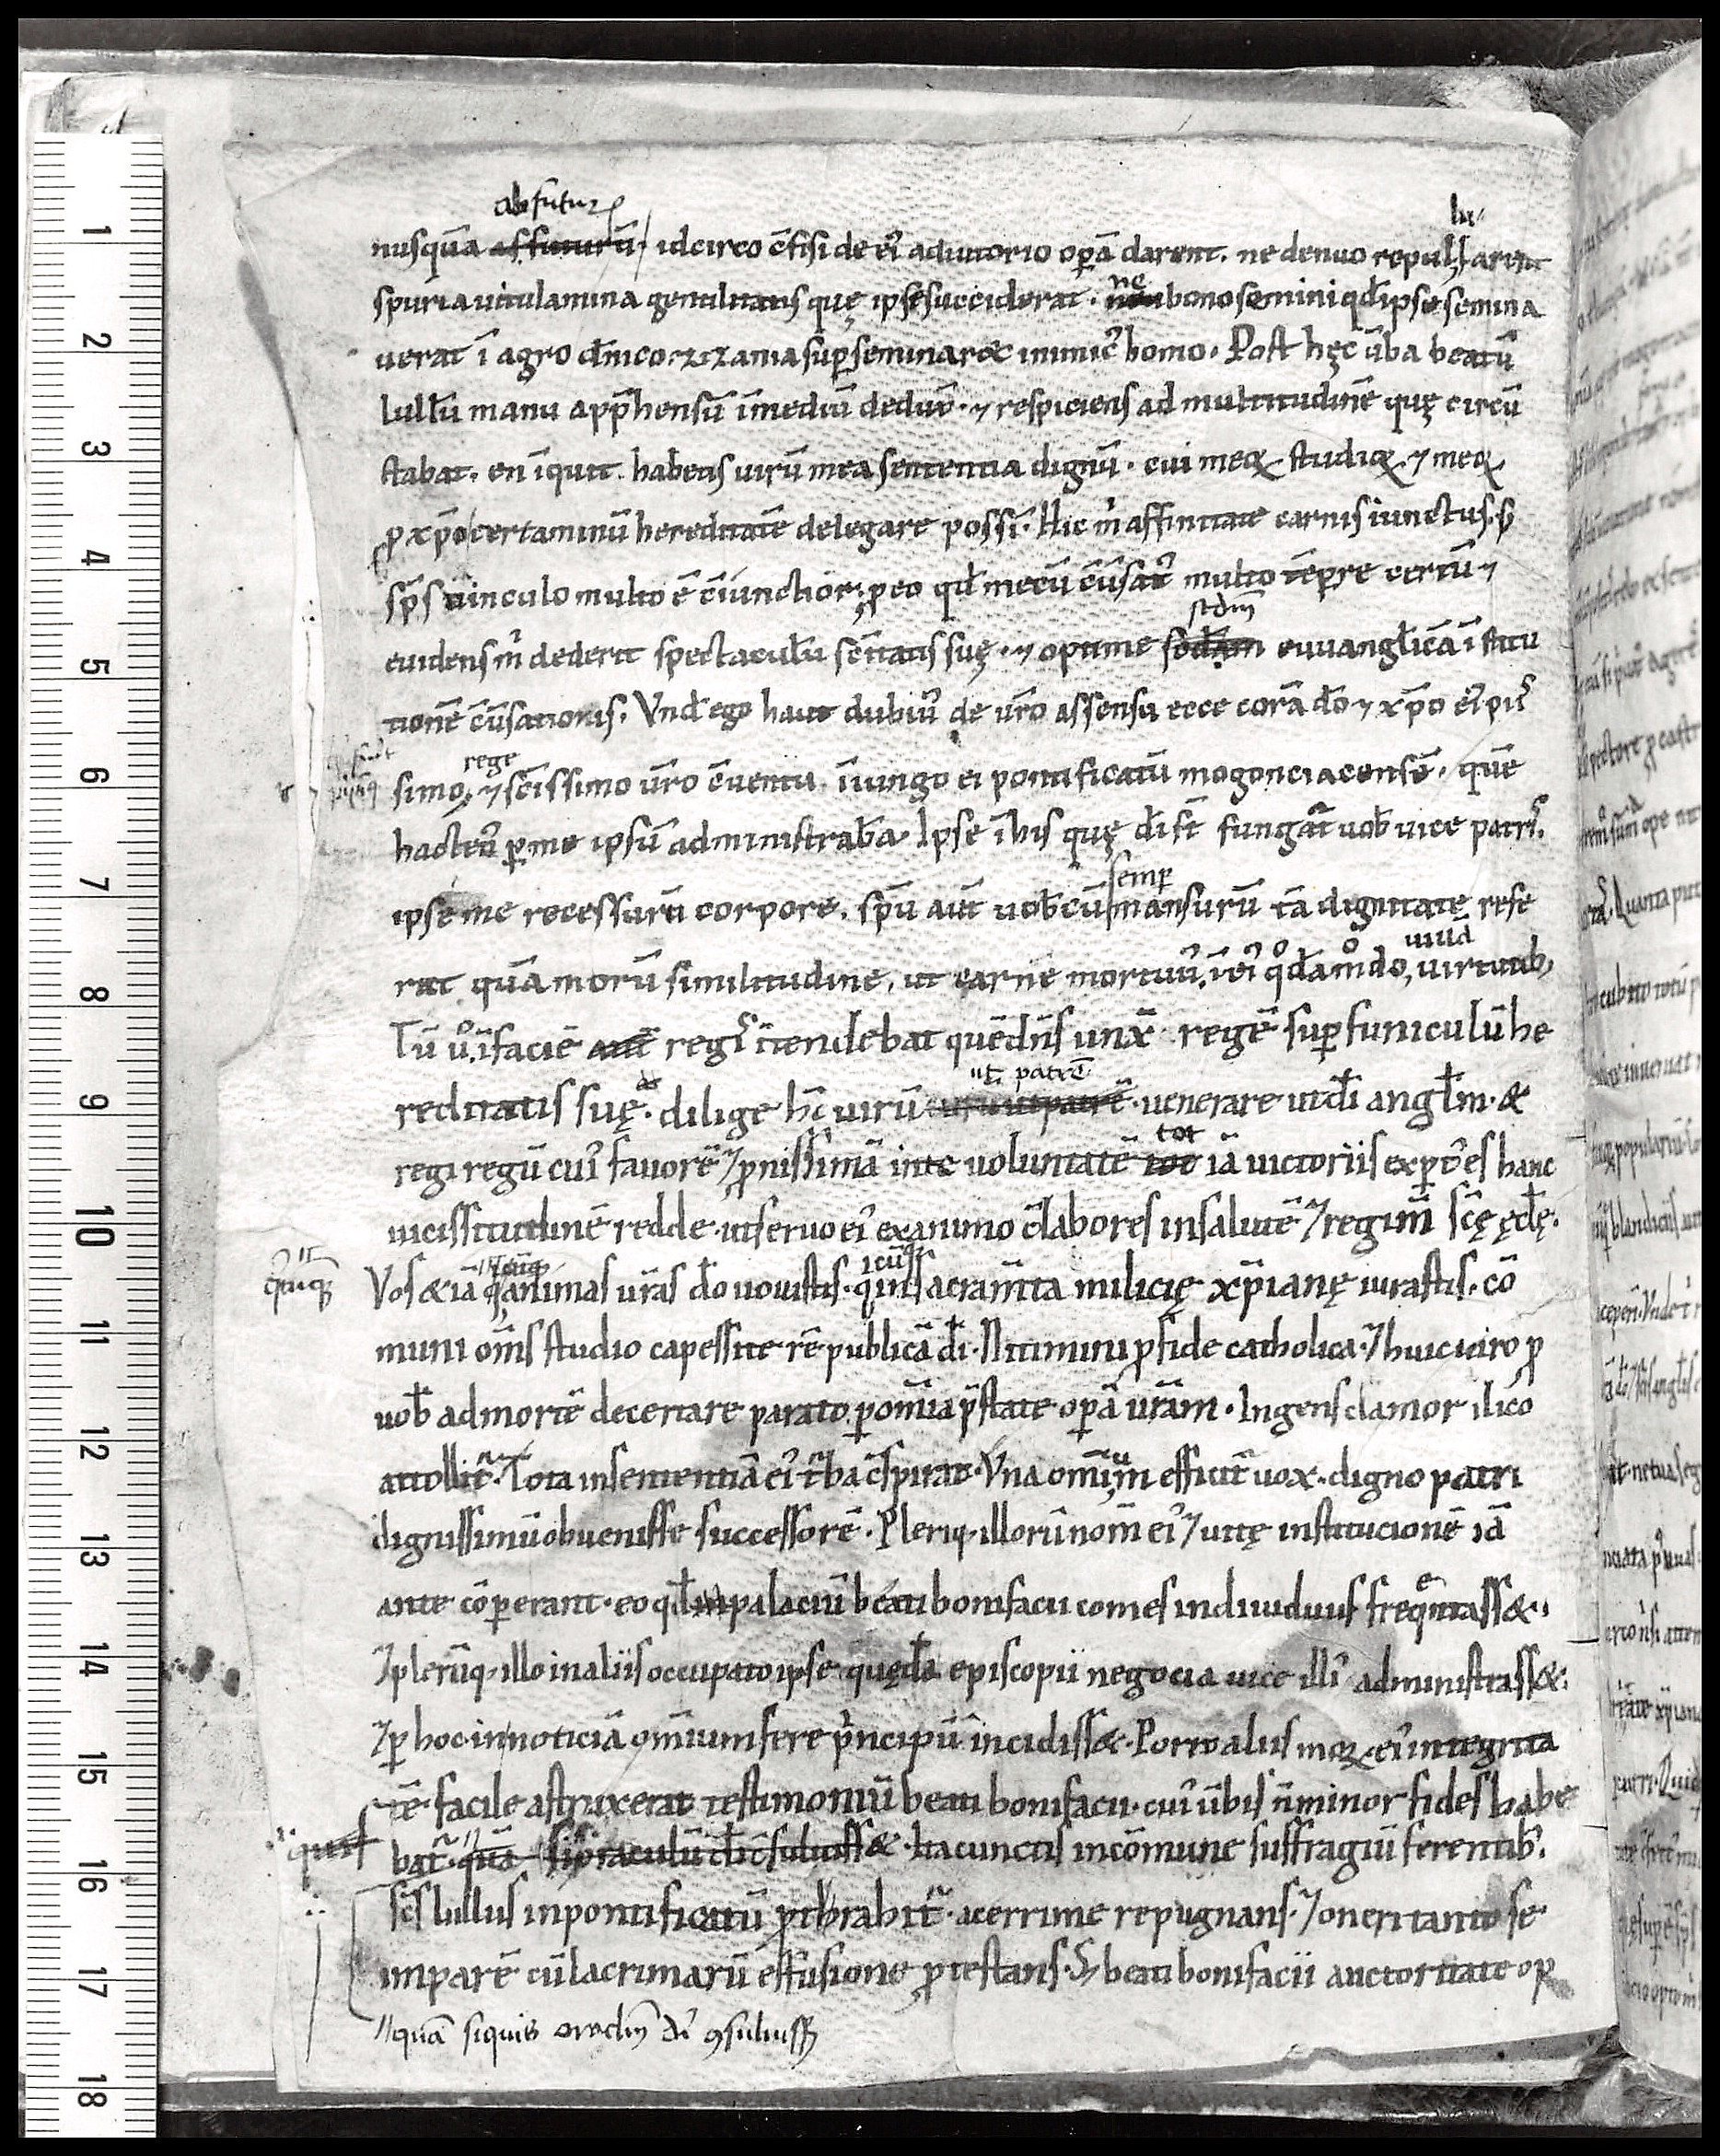 abfutur
nusquā affuturū. idcirco c̄fisi de ei' adiutorio op̄a darent. ne denuo repul arent
spuria uitulamina gentilitatis quę ipse succiderat. ne bono semini qđ ipse semina
uerat ī agro dn̄ico zizania sup̄seminaret inimic' homo. Post hęc ūba beatū
lullū manu app̄hensū ī mediū dedux̄. ⁊ respiciens ad multitudinē quę circū
stabat. en īquit. habetis uirū mea sententia dignū. cui meoꝝ studioꝝ ⁊ meoꝝ
ꝓ xp̄o certaminū hereditatē delegare possī. Hic m̄ affinitate carnis iunctus. s;
sp̄s uinculo multo ē c̄iunctior. ꝓ eo qđ mecū c̄uersat' multo tēpre certū ⁊
stdm̄
euidens m̄ dederit spectaculū sc̄itatis suę. ⁊ optime euuanglicā īstitu
tionē c̄uersationis. Vnđ ego haut dubiu' de ur̄o assensu ecce corā dō ⁊ xp̄o ei' pii
rege
simo, ⁊ sc̄issimo ur̄o c̄uentu. īiungo ei pontificatū mogonciacensē. quē
hacten' ꝑ me ipsū administrabā. Ipse ī his quę dī st̄ fungat̄ uob̄ uice patris.
semꝑ
ipse me recessurū corpore. sp̄u aut̄ uob̄cū mansurū tā dignitate refe
rat quā morū similitudine. ut carne mortuū. ī ei' qđāmodo, uirtutib;
Tū u°. ī faciē regis ītendebat quē dn̄s unx̄ regē sup̄ funiculū he
ut patrē
reditatis suę. dilige hc̄ uirū uenerare ut dī anglm. &
tot
regi regū cui' favorē ⁊ ꝓnissimā in te voluntatē iā uictoriis exp̄t' es hanc
uicissitudinē redde. ut seruo ei' ex animo c̄labores in salutē ⁊ regim̄ sc̄ę ęclę.
Vos & iā q̄ animas ur̄as dō uouistis. q̄ in sacram̄ta milicię xp̄ianę iurastis. cō
muni om̄s studio capessite rē publicā dī. Nitimini ꝓ fide catholica. ⁊ huic uiro ꝓ
uob̄ ad mortē decertare parato. ꝑ om̄ia p̄state opā ur̄am. Ingens clamor ilico
attollit̄. Tota in sententiā ei' t̄ba c̄spirat. Vna om̄ium efficit̄ uox. digno patri
dignissimū obuenisse successorē. Pleriq. illorū nom̄ ei' ⁊ uitę institucionē iā
ante cōperant. eo qđ in palaciū beati bonifacii comes indiuiduus freq̄ntass&.
⁊ plerūq. illo in aliis occupato ipse quędā episcopii negocia uice illi' administrass&.
⁊ ꝑ hoc in noticiā om̄ium fere p̄ncipū incidiss&. Porro aliis moꝝ ei' integrita
tē facile astruxerat testimoniū beati bonifacii. cui' ūbis n̄ minor fides habe
bat̄. quā si q's oraculū dī c̄suluiss&. Ita cunctis in cōmune suffragiū ferentib'.
sc̄s lullus in pontificatū ꝓt̄hrahit̄. acerrime repugnans. ⁊ oneri tanto se
imparē cū lacrimarū effusione ꝓtestans. S; beati bonifacii auctoritate op
quā siquis oraclm̄ dī ꝯsuluiss;